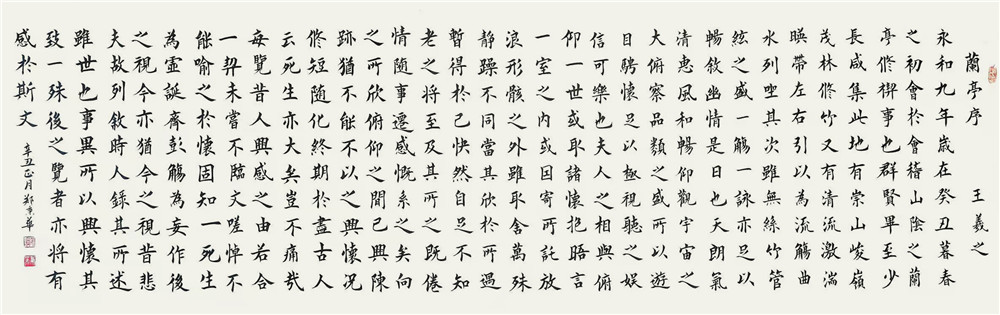 蘭亭序 王羲之
永和九年歲在癸丑暮春
之初會於會稽山陰之蘭
亭修禊事也群賢畢至少
長咸集此地有崇山峻嶺
茂林修竹又有清流激湍
暎帶左右引以為流觴曲
水列坐其次雖無絲竹管
絃之盛一觴一詠亦足以
暢敘幽情是日也天朗氣
清惠風和暢仰觀宇宙之
大俯察品類之盛所以遊
目騁懷足以極視聽之娛
信可樂也夫人之相與俯
仰一世或取諸懷抱晤言
一室之內或因寄所託放
浪形骸之外雖取舍萬殊
靜躁不同當其欣於所遇
暫得於己快然自足不知
老之將至及其所之既倦
情隨事遷感慨系之矣向
之所欣俯仰之間已為陳
跡猶不能不以之興懷況
修短隨化終期於盡古人
云死生亦大矣豈不痛哉
每覽昔人興感之由若合
一契未嘗不臨文嗟悼不
能喻之於懷固知一死生
為靈誕齊彭觴為妄作後
之視今亦猶今之視昔悲
夫故列敘時人錄其所述
雖世也事異所以興懷其
致一殊後之覽者亦將有
感於斯文
辛丑正月鄭京華